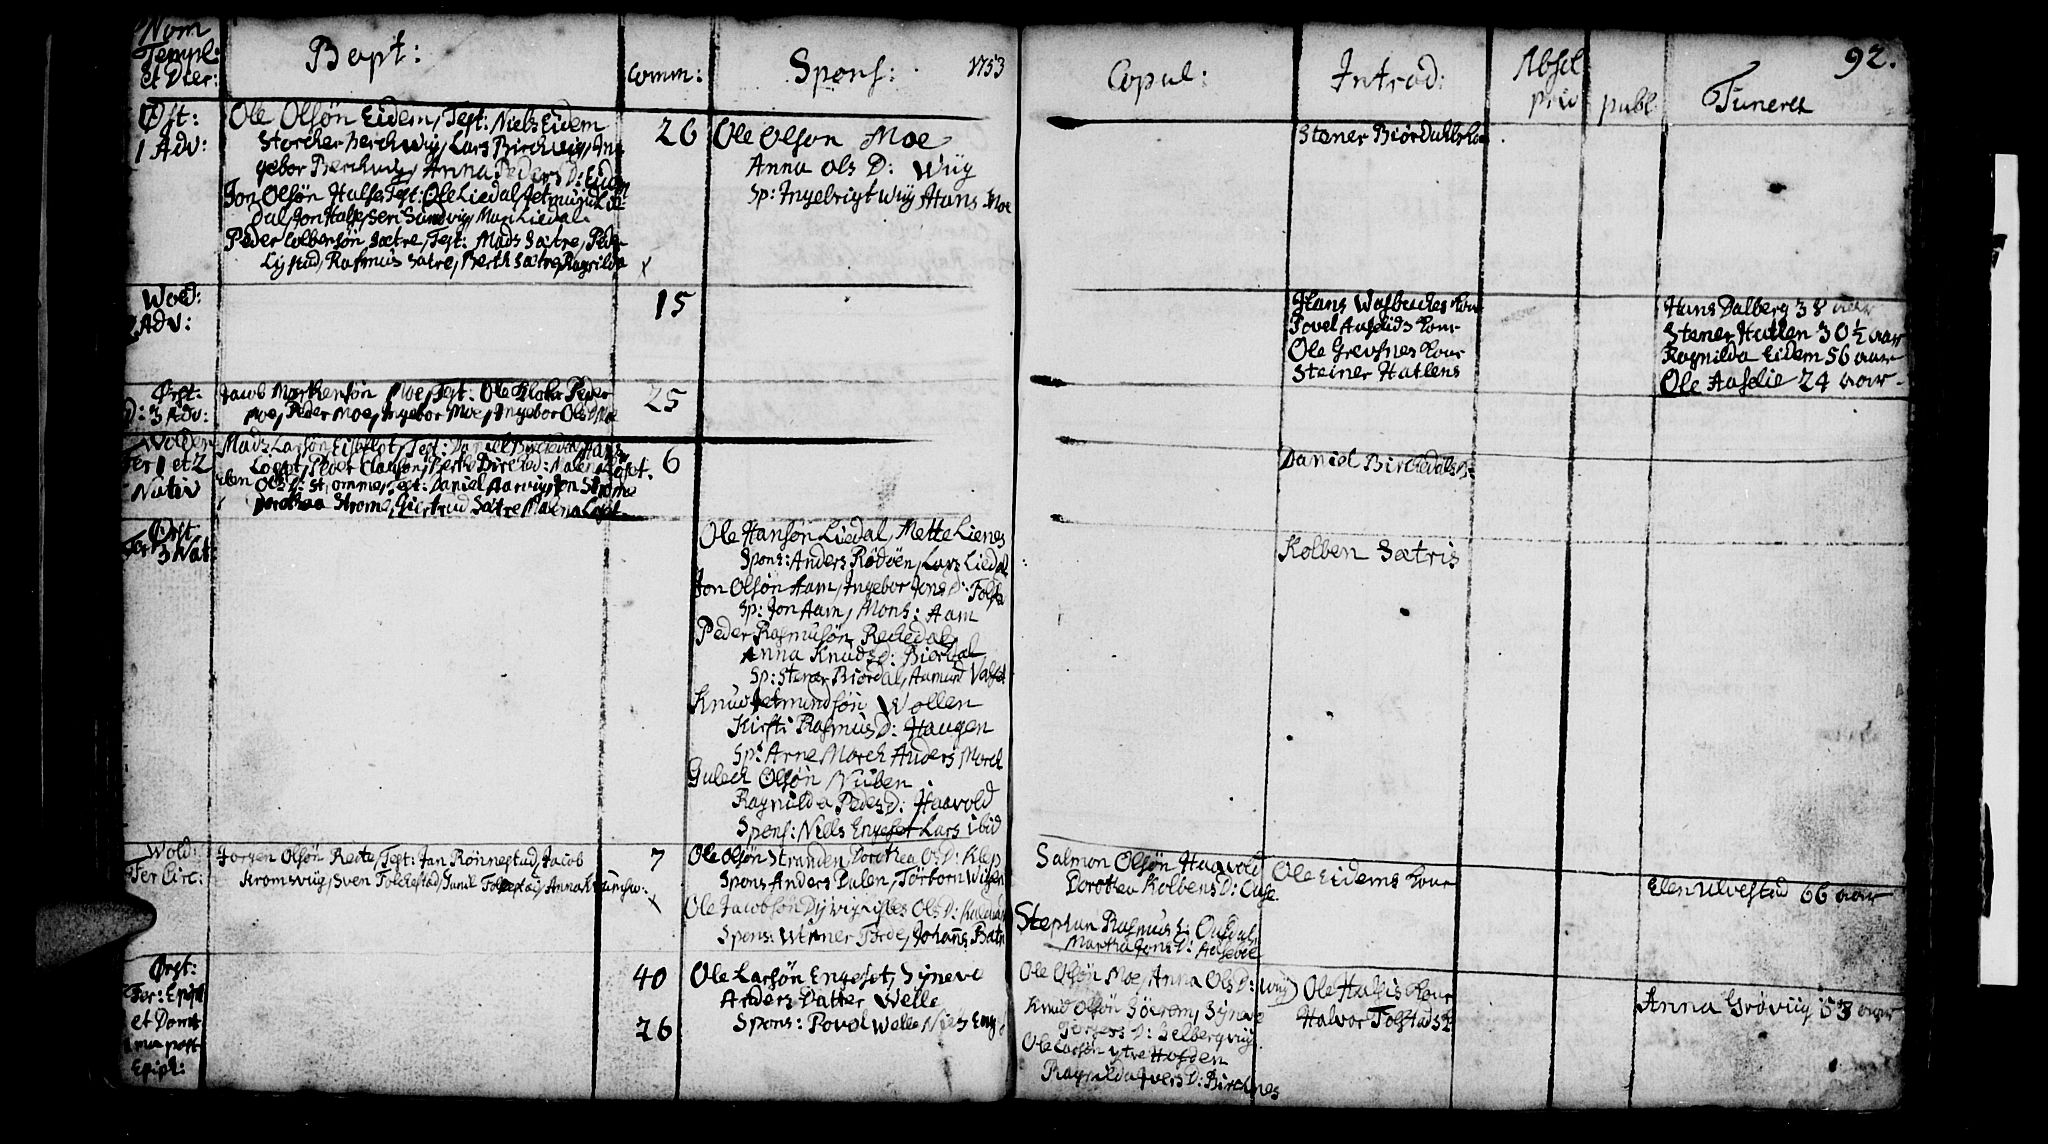 Nom
Templ:
et Dier:
Bapt:
Comm:
Spons:
1753
Copul:
Introd:
Absol
priv
publ
Funera
92.
Ørst:
1 Adv:
Ole Olsøn Eidem, Test: Niels Eidem
Storcker Berchwig, Lars Birchwig, An
gebor Berchwig, Anna Peders D: Eidem
Jon Olsøn Halse, Test: Ole Liedal,
dal, Jon Halse, Seri Sundvig, Mari Liedal
Peder Colbensøn Sætre, Test: Mads Sætre, Peder
Lystad, Rasmus Sætre, Berth Sætre, Ragnilda
26
Ole Olson Moe
Anna Ols D: Wiig
Sp: Ingebrigt Wiig, Hans Moe
Stener Biørdahls kone
Wold:
2 Adv:
15
Hans Wasbackes kone
Povel Aaseids kone
Ole Grevsnes kone
Steiner Hatlens
Hans Dalberg 38 aar
Stener Hatlen 30 ½ aar
Ragnilda Eidem 56 aar
Ole Aaselie 24 aar
Ørst:
D: 3 Adv:
Jacob Mortensøn Moe, Test: Ole Klocker, Peder
Moe, Peder Moe, Ingebor Moe, Ingebor Ols D Moe
25
Wolden
Fer 1 et 2
Nativ
Mads Larsøn Eiset, Test: Daniel Birchedal, Hans
Logot, Peder Clauson, Berte Birched: Malena Loset.
Elen Ols D: Strømme, Test: Daniel Aarvig, Jon Strøme
Dorothea Strøme, Giertrud Sætre, Malena Loset
6
Daniel Birchedals K:
Ørst
Fer 3 Nat:
Ole Hansøn Liedal, Mette Lienes
Spons: Anders Rødøen, Lars Liedal
Jon Olsøn Aam, Ingebor Jons D: Folsta
Sp: Jon Aam, Mons: Aam
Peder Rasmusøn Rechedal,
Anna Knuds D: Biordal
Sp: Stener Biordal, Aamund Vatset
Knud Jetmundsøn Wollen
Kirsti Rasmus D: Haugen
Sp: Arne Morch Anders Morch
Gulech Olsøn Nuben
Ragnilda Peders D: Haavold
Spons: Niels Engeset Lars ibid
Kolben Sætris
Wold:
Fer Circ:
Jørgen Olsøn Reete, Test: Jan Rönnestad, Jacob
Stromsviig, Sven Folchestad, Gunil Folchestad, Anna
7
Ole Olsøn Stranden, Dorothea Ols D: Klep
Spons Anders Dalen, Torborn Wigen
Ole Jacobson Dyrvig, Lisbet Ols D:
Spons: Werner Førde, Johans Batn
Salmon Olsøn Haavold
Dorothea Kolbens D: Cuse
Stephan Rasmus S: Oudal,
Martha Jons D:
Ole Eidems kone
Elen Ulvestad 66 aar
Ørst:
Fer: Epiph
et Domi
ma post
Epiph:
40
26
Ole Larsøn Engeset, Syneve
Anders Datter Welle
Spons: Povel Welle, Niels Eng
Ole Olsøn Moe, Anna Ols D: Wiig
Knud Olsøn Søerem, Syneve
D: Selbergviig
Ole Larson ytre Hofden
Ragnilda Ivers D: Birchnes
Ole Halsis kone
Halvor Folstads k
Anna Grøviig 53 aar